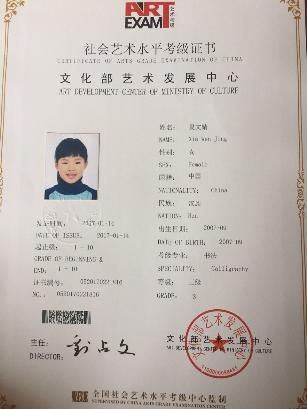 ART
EXAM
艺术考级
社会艺术水平考级证书
CERTIFICATE OF ARTS GRADE EXAMINATION OF CHINA
文化部艺术发展中心
ART DEVELOPMENT CENTER OF MINISTRY OF CULTURE
姓名:
NAME:
性别: 女
SEX: Female
国籍: 中国
NATIONALITY: China
民族: 汉族
NATION: Han
发证时间: 2017-01-14
DATE OF ISSUE: 2017-01-14
出生日期: 2007-09
DATE OF BIRTH: 2007-09
起止级: 1 - 10
GRADE OF BEGINNING &
END: 1 - 10
考级专业: 书法
SPECIALITY: Calligraphy
证书编号:
NO.:
等级: 三级
GRADE: 3
主任:
DIRECTOR:
文化部艺术发展中心
ART DEVELOPMENT CENTER OF MINISTRY OF CULTURE
全国社会艺术水平考级中心监制
SUPERVISED BY CHINA ARTS GRADE EXAMINATION CENTER